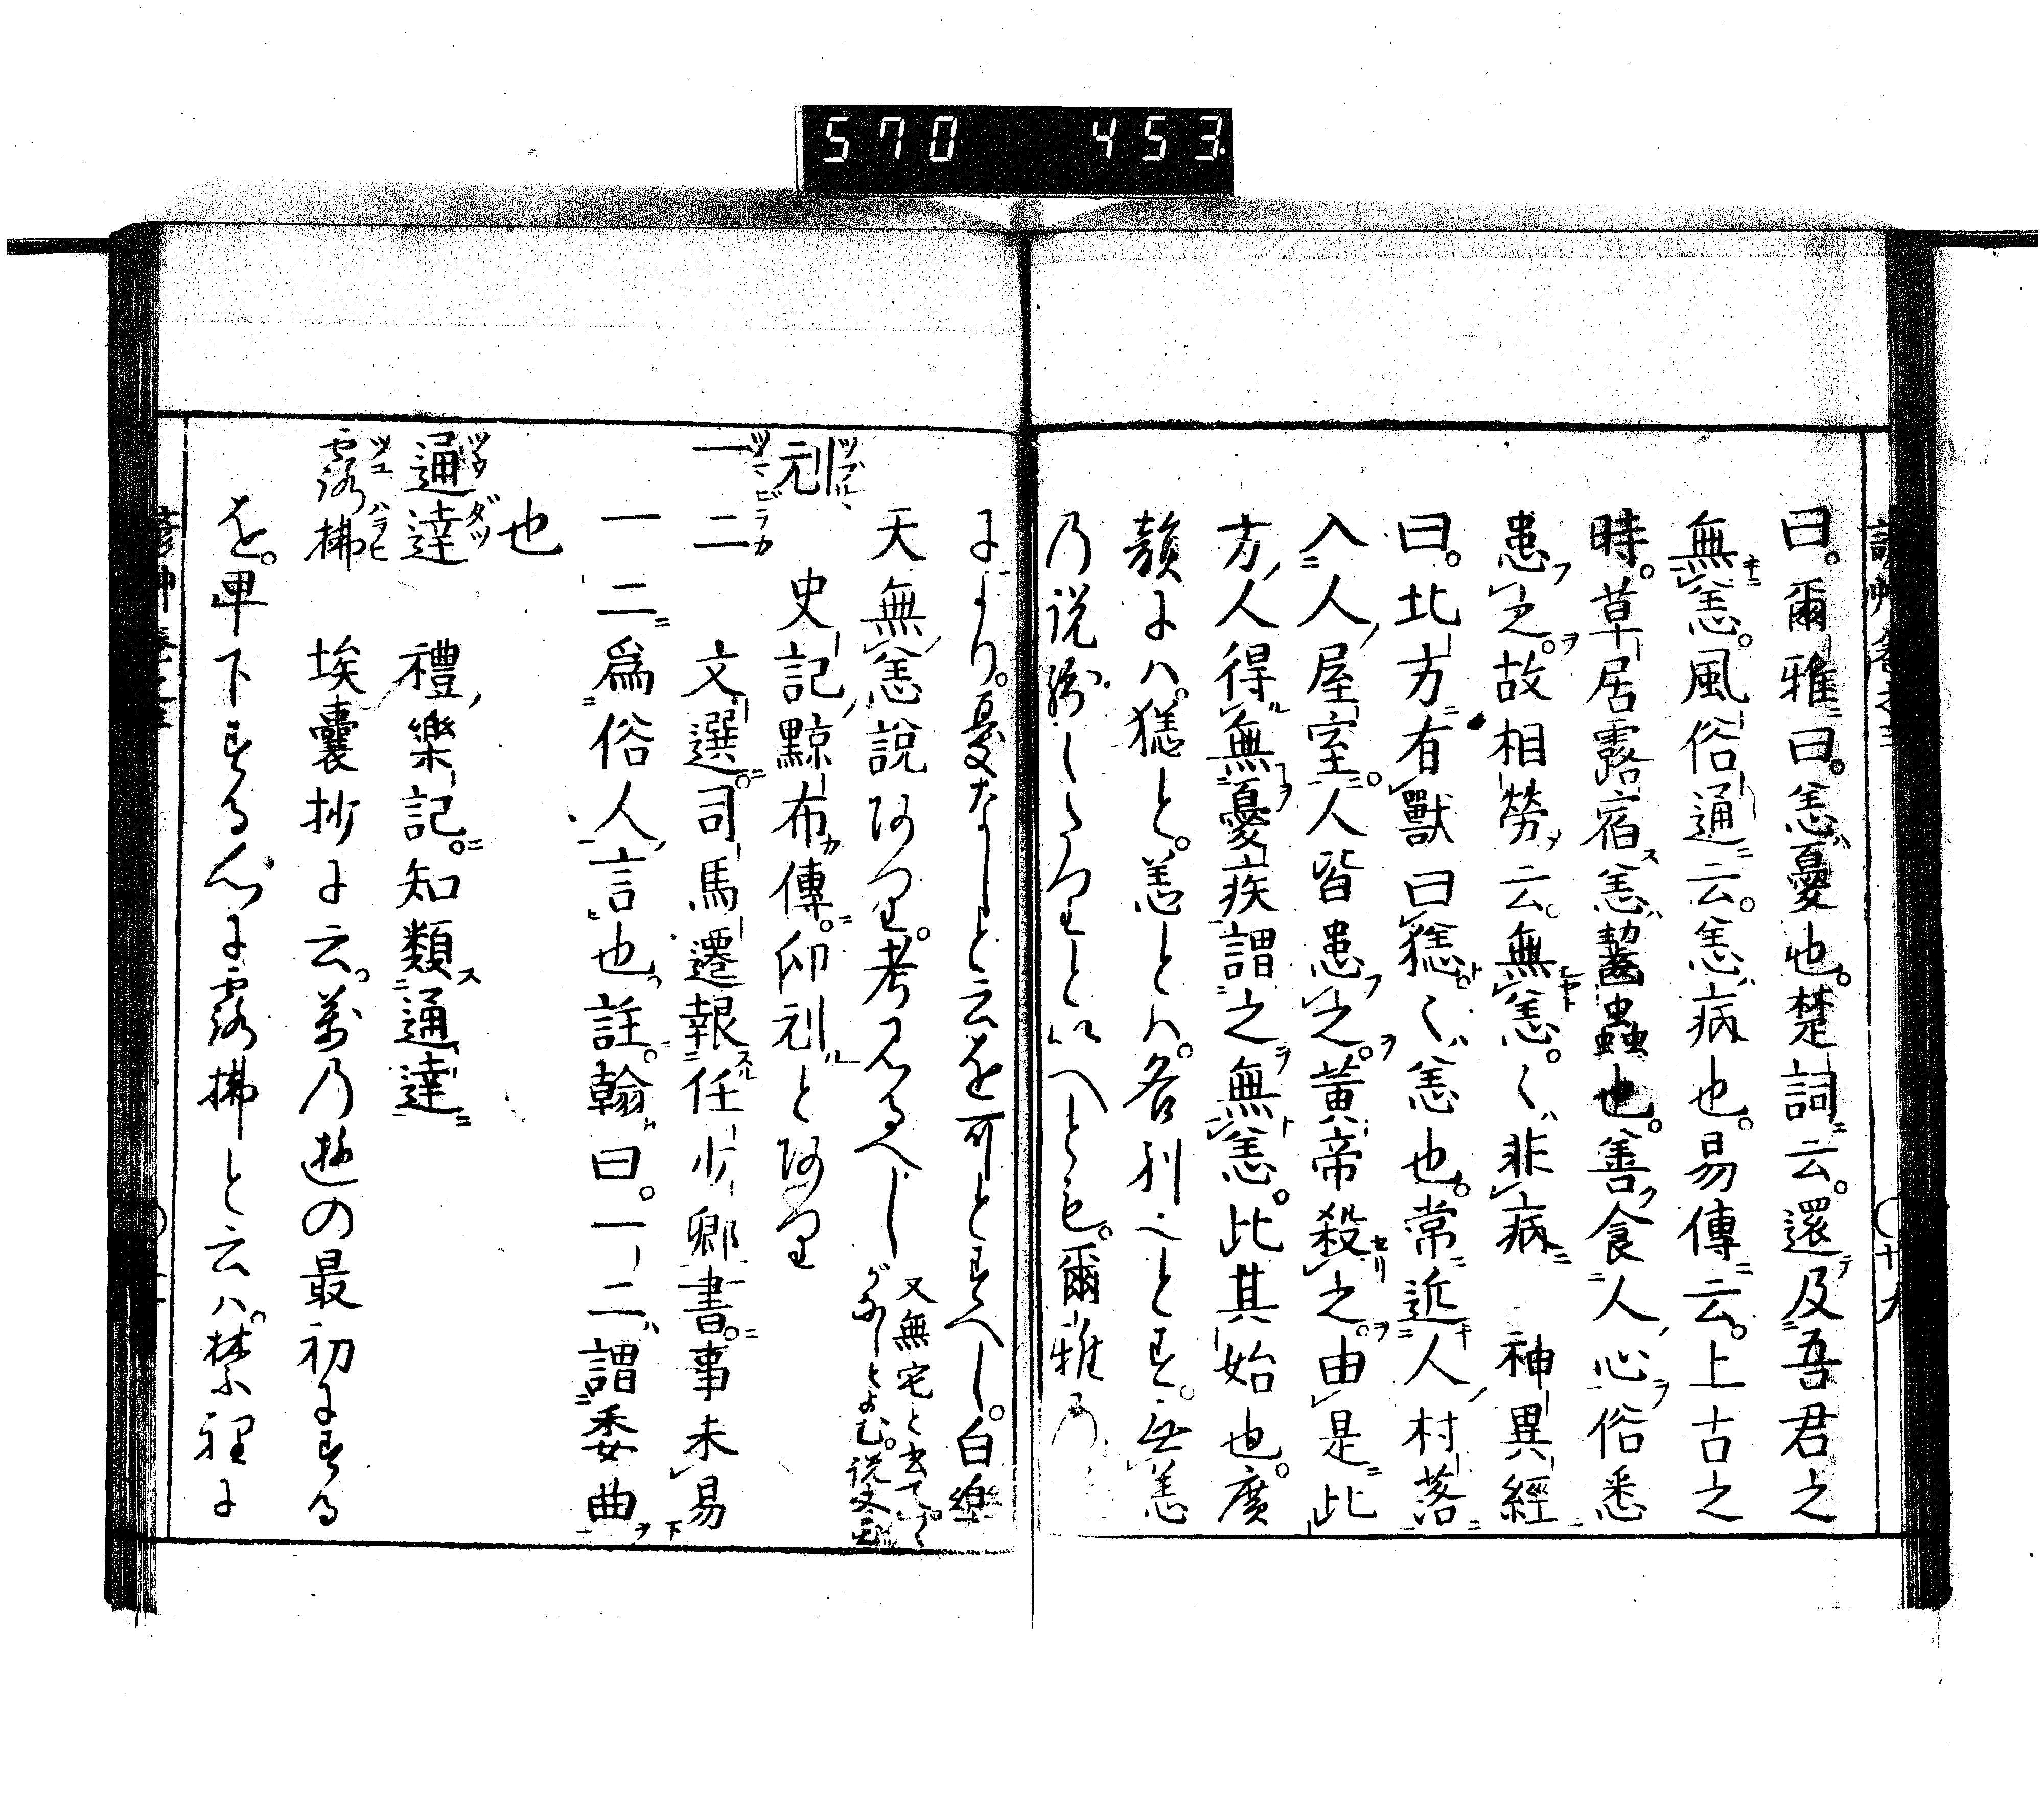 570 453
曰。爾雅曰。恙憂也。楚詞云。還及吾君之
無恙。風俗通云。恙病也。易傳云。上古之
時。草居露宿恙齧蟲也。善食人心俗悉
患之。故相勞云。無恙。〱非病 神異經
曰。北方有獸曰㺊。〱恙也。常近人村落
入人屋室。人皆患之。黃帝殺之。由是此
方人得無憂疾謂之無恙。此其始也。廣
韻にハ。㺊と。恙とハ。各別也とす。無恙
乃説弥しくつりといへとも。爾雅の
によりて。憂なしと云を可とすへし。白樂
天無恙説あり。考みるへし 又無宅と書て。つゝ
がなしとよむ。説文ニ
刓 史記黥布傳。印刓とあり
一二 文選。司馬遷報任少卿書。事未易
一二爲俗人言也註。翰曰。一二謂委曲
也
ツウダツ
通達 禮樂記。知類通達
ツユハラヒ
露拂 埃囊抄に云。万乃遊の最初にする
を。卑下する心に露拂と云ハ。禁裡に